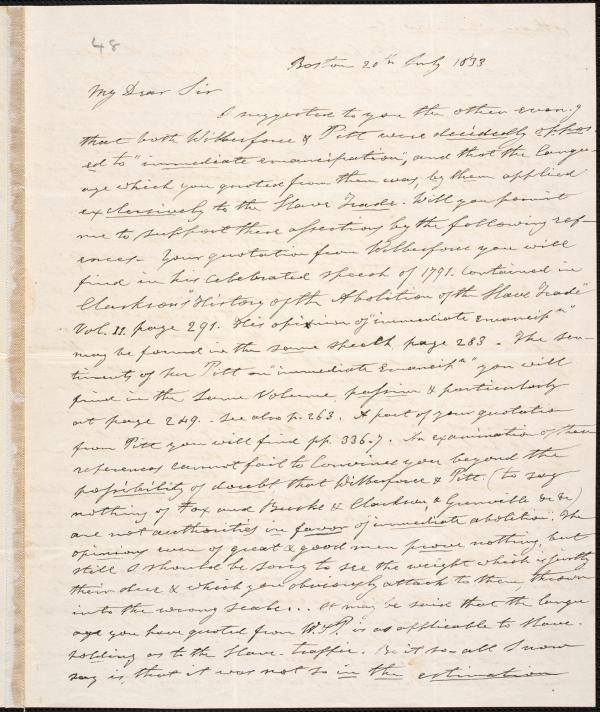 48
Boston 20th July 1833
My Dear Sir
I suggested to you the other eveng
that both Wilberforce & Pitt were decidedly oppos-
ed to "immediate emancipation", and that the langu-
age which you quoted from them was, by them applied
exclusively to the Slave Trade. Will you permit
me to support these assertions by the following ref-
erences. Your quotation from Wilberforce you will
find in his celebrated speech of 1791. Contained in
Clarkson's "History of the Abolition of the Slave Trade"
Vol. II. page 291. His opinion of "immediate Emancipn"
may be found in the same speech page 283. The sen-
timents of Pitt on "immediate Emancipn" you will
find in the same Volume, passim & particularly
at page 249. See also p. 263. A part of your quotation
from Pitt you will find pp. 336-7. An examination of these
references cannot fail to convince you beyond the
possibility of doubt that Wilberforce & Pitt (to say
nothing of Fox and Burke & Clarkson & Grenville &c &c)
are not authorities in favor of "immediate abolition". The
opinions even of great & good men prove nothing, but
still I should be sorry to see the weight which is justly
their due & which you obviously attach to them, thrown
into the wrong scale... It may be said that the langu-
age you have quoted from W. & P. is as applicable to Slave-
holding as to the Slave-traffic. Be it so—all I now
say is, that it was not so in the estimation